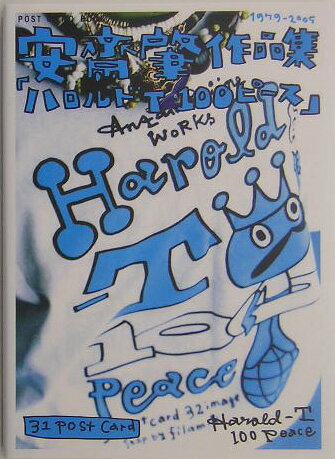 POST CARD BOOK
1979-2005
安齋肇作品集
「ハロルドT100ピース」
WORKS
Harold
T
100
Peace
card 32 image
31 Post Card
Harold-T
100 Peace